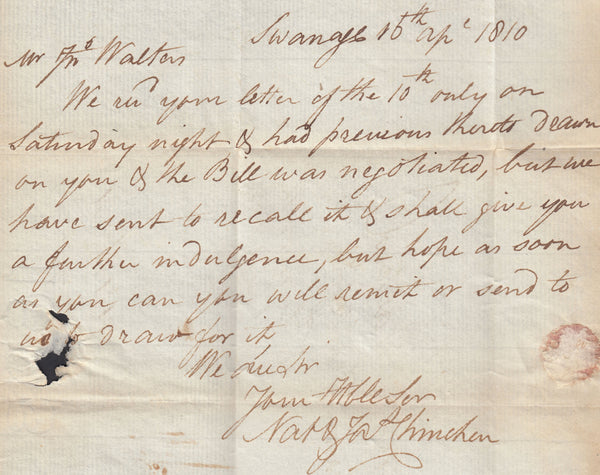 Swanage 16th Apl 1810
Mr Jno Walters
We recd your letter of the 10th only on
Saturday night & had previous thereto drawn
on you & the Bill was negotiated, but we
have sent to recall it & shall give you
a further indulgence, but hope as soon
as you can you will remit or send to
us to draw for it
We are Sir
Your Hble Ser
Nat & Jos Chinchen